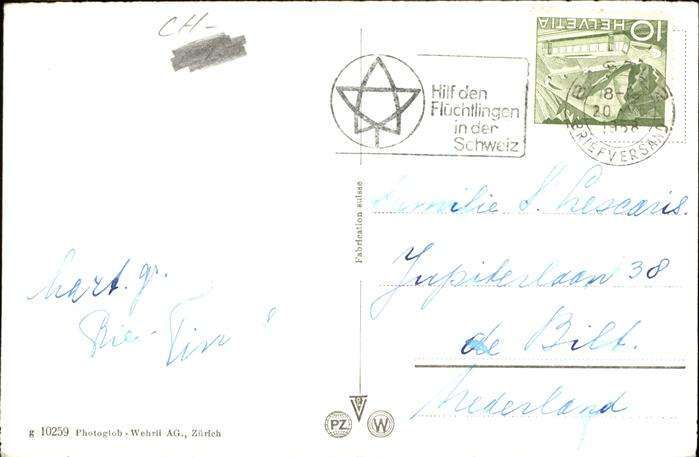 CH-
HELVETIA
10
18-
20.
1958
BRIEFVERSAND
Hilf den
Flüchtlingen
in der
Schweiz
Fabrication suisse
Familie S. Lescaris.
Jupiterlaan 38
de Bilt.
Nederland
hart. gr.
Rie - Tim
g 10259 Photoglob-Wehrli AG., Zürich
PZ
W